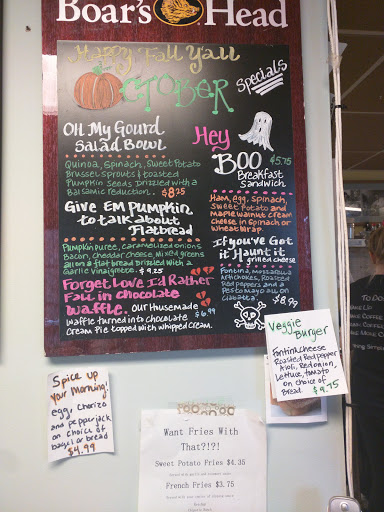 Boar's Head
Happy Fall Y'all
OCTOBER
Specials
Oh My Gourd
Salad Bowl
Quinoa, Spinach, Sweet Potato
Brussel sprouts & toasted
Pumpkin seeds Drizzled with a
Balsamic Reduction.
$8.25
Give Em Pumpkin
to talk about
Flatbread
Pumpkin puree, caramelized onions
Bacon, cheddar cheese, mixed greens
all on a flatbread Drizzled with a
Garlic Vinaigrette. $9.25
Forget Love I'd Rather
Fall in chocolate
Waffle. Our Housemade
$6.99
Waffle turned into chocolate
Cream Pie topped with whipped cream.
Hey
BOO
$5.75
Breakfast
Sandwich
Ham, egg, Spinach,
Sweet Potato and
Maple walnut cream
cheese in Spinach or
Wheat Wrap
If you've Got
it Haunt it
grilled cheese
Fontina, Mozzarella
Artichokes, Roasted
Red peppers and a
Pesto mayo all on
Ciabatta
$8.99
Spice up
your Morning!
egg, chorizo
and pepperjack
on choice of
bagel or bread
$4.99
Veggie
Burger
Fontina cheese
Roasted Red pepper
Aioli, Red onion,
Lettuce, tomato
on choice of
Bread.
$9.75
Want Fries With
That?!?!
Sweet Potato Fries $4.35
French Fries $3.75